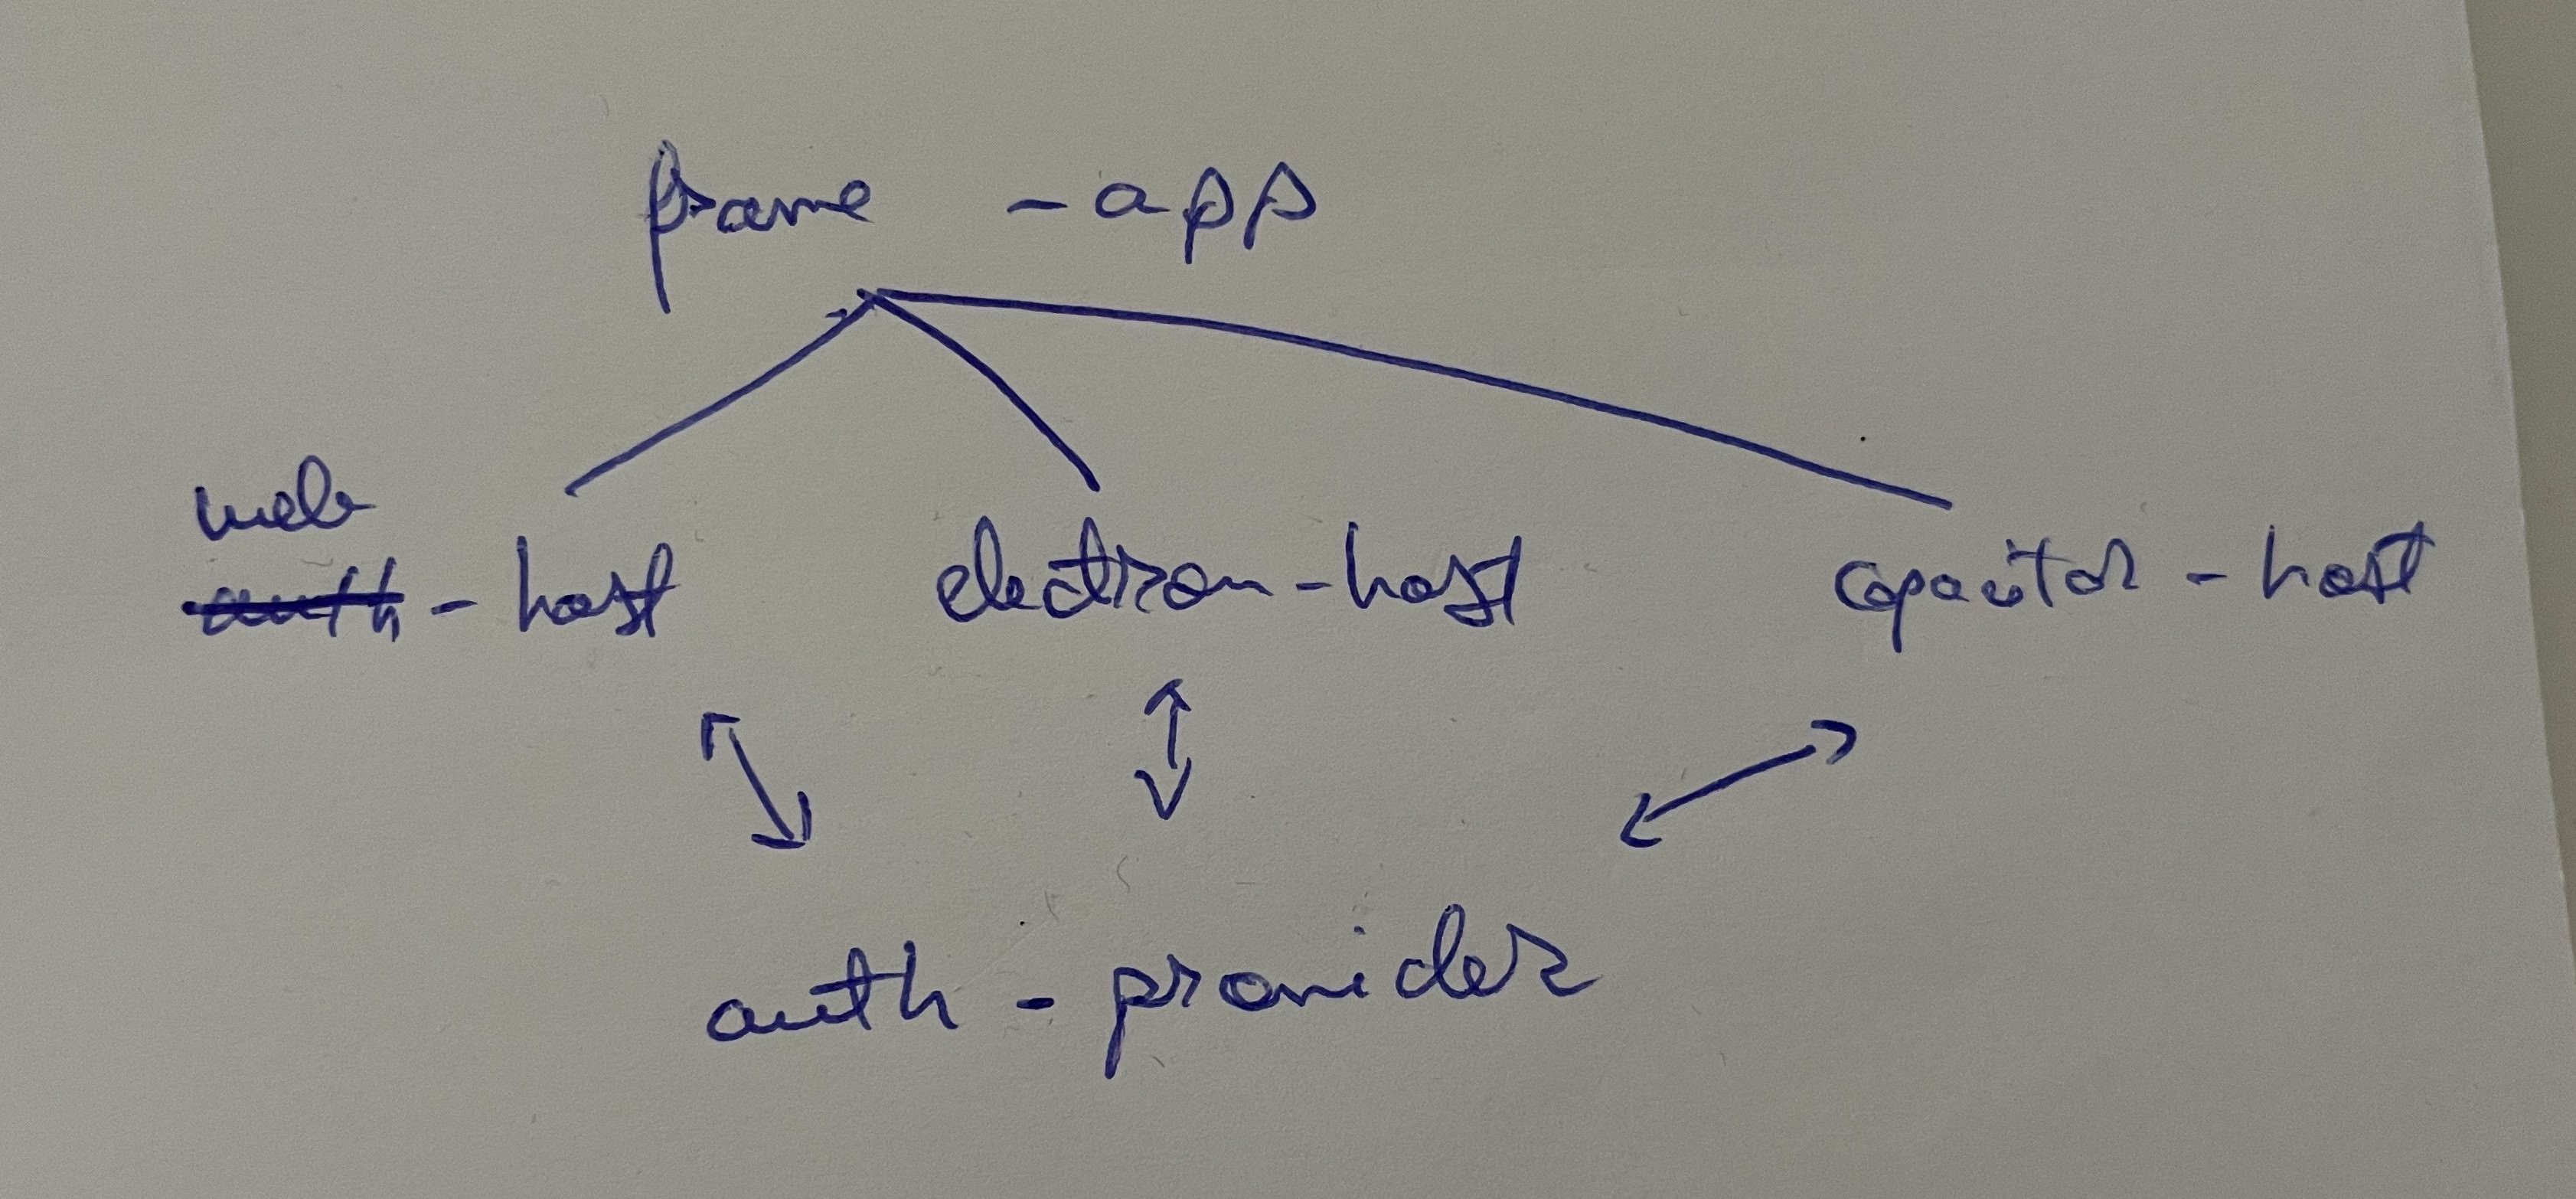 frame - app
web
auth - host electron - host capacitor - host
auth - provider